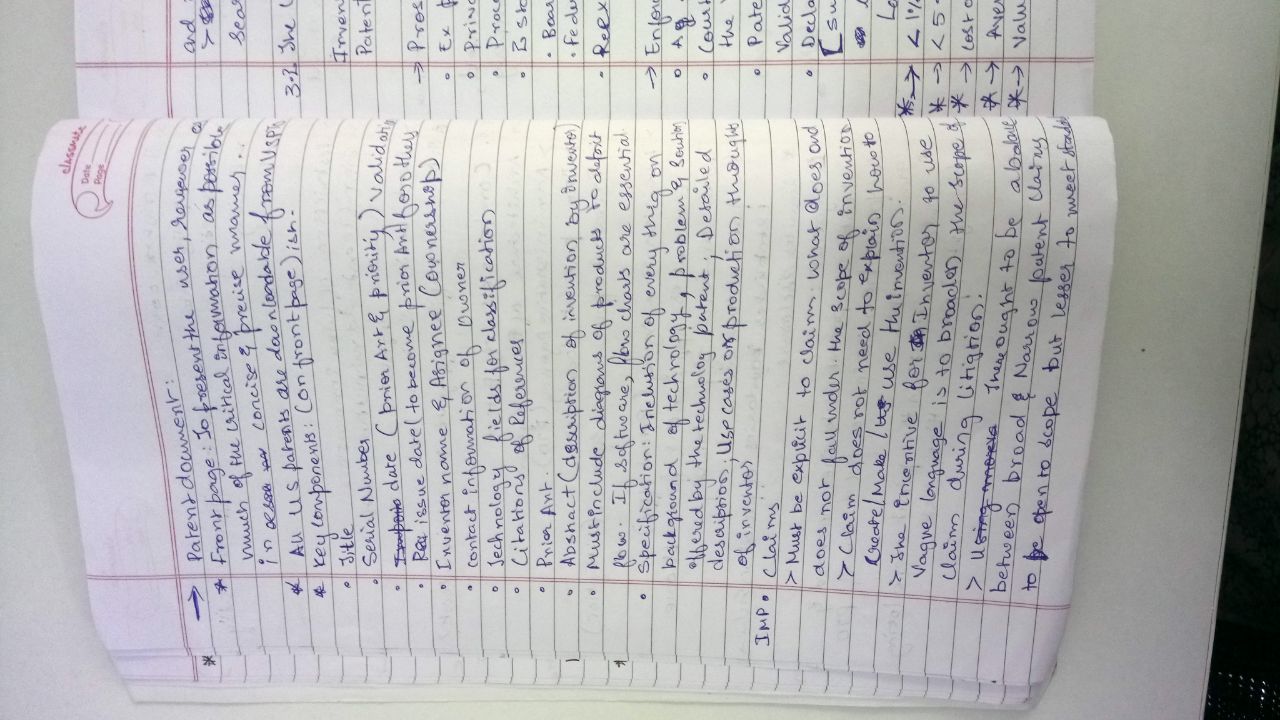 classmate
Date
Page
→ Patent document:
* Front page: To present the user, reviewer
much of the critical information as possible
in a concise & precise manner..
* All US patents are downloadable from USPTO
* Key Components: (on front page) ish.-
• Title
• Serial Number
• date (prior Art & priority) Validation
• issue date (to become prior Art for others
• Inventor name & Assignee (ownership)
• contact information of owner
• Technology fields for classification
• Citations of References
• Prior Art
• Abstract (description of invention by inventor)
• Must include diagrams of products to depict
flow. If software, flow charts are essential
• Specification: Inclusion of every thing on
background of technology, problem & solution
offered by the technology patent, Detailed
description, Use cases or production thoughts
of inventor
IMP • Claims
> Must be explicit to claim what does and
does not fall under the scope of invention
> Claim does not need to explain how to
Create/Make/use the invention.
> The incentive for Inventor to use
Vague language is to broaden the scope of
Claim during litigtion.
> There ought to be a balance
between broad & Narrow patent claims
to be open to scope but lesser to meet
and
3.2 The
Inven
Patent
→ Pros
• Ex
• Princ
• Proc
• Boar
• Fede
• Reex
→ Enfor
• Ag
• Court
the
• Pate
Valid
• Decla
[su
* → < 1%
* → < 5
* → Costo
* → Aver
* → Valu